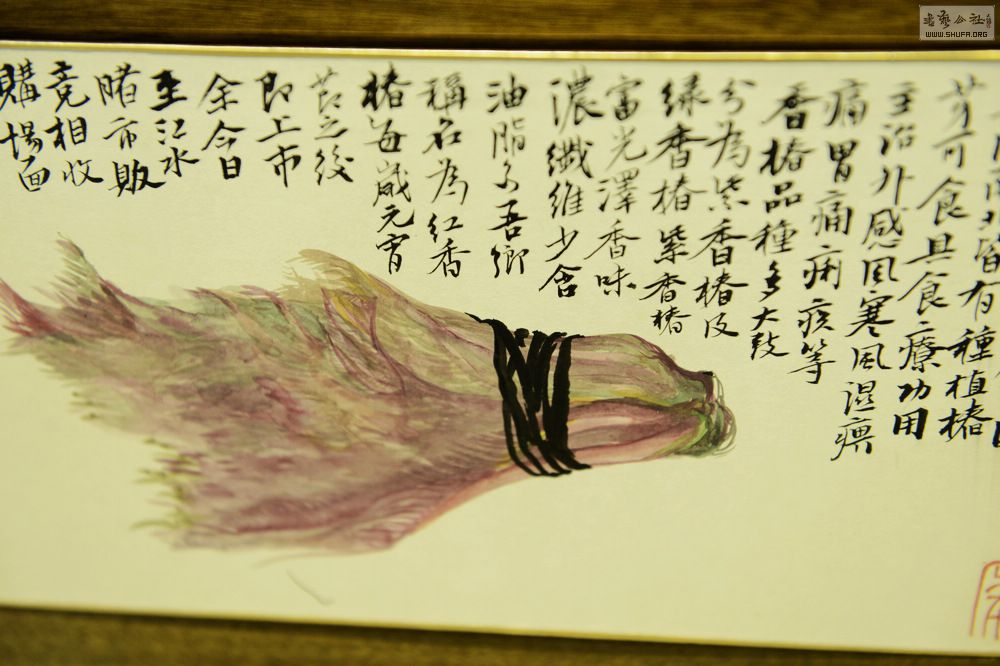 南北皆有種植椿
芽可食具食療功用
主治外感風寒風濕痹
痛胃痛痢疾等
香椿品種多大致
分為紫香椿及
綠香椿紫香椿
富光澤香味
濃纖維少含
油脂多吾鄉
稱名為紅香
椿每歲元宵
節之後
即上市
余今日
至江水
睹市販
競相收
購場面
書藝公社
WWW.SHUFA.ORG